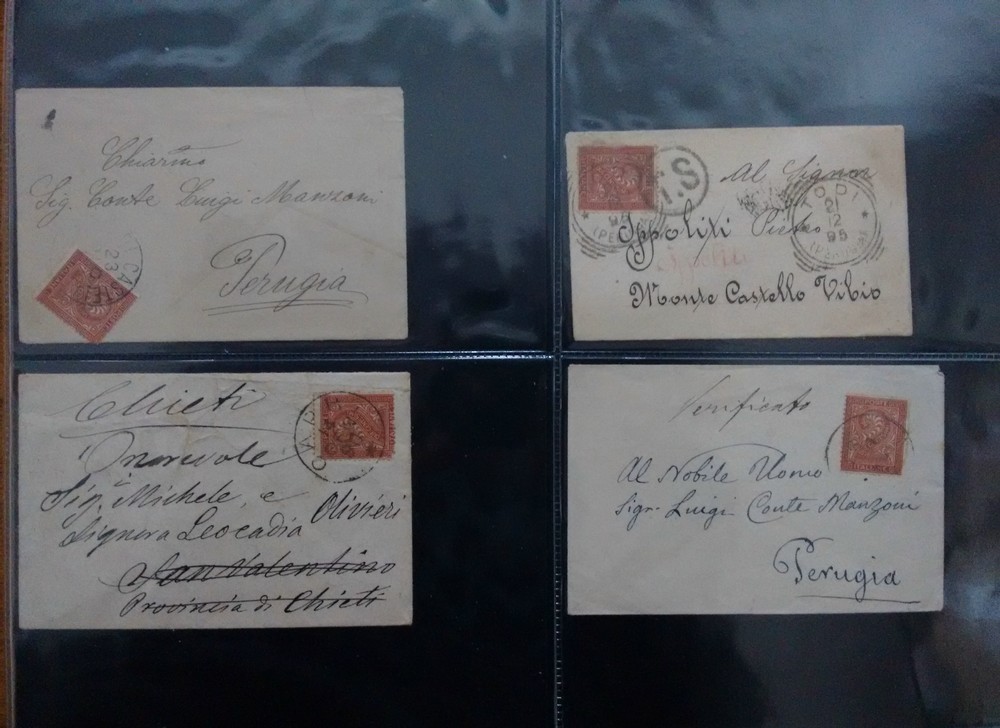 Chiarmo
Sig. Conte Luigi Manzoni
Perugia
CASTEL
23
T.S
Al Signor
Ippoliti Pietro
Monte Castello Vibio
TODI
12
95
(PERUGIA)
Chieti
Onorevole
Sigr. Michele, e
Signora Leocadia Olivieri
San Valentino
Provincia di Chieti
Verificato
Al Nobile Uomo
Sigr. Luigi Conte Manzoni
Perugia